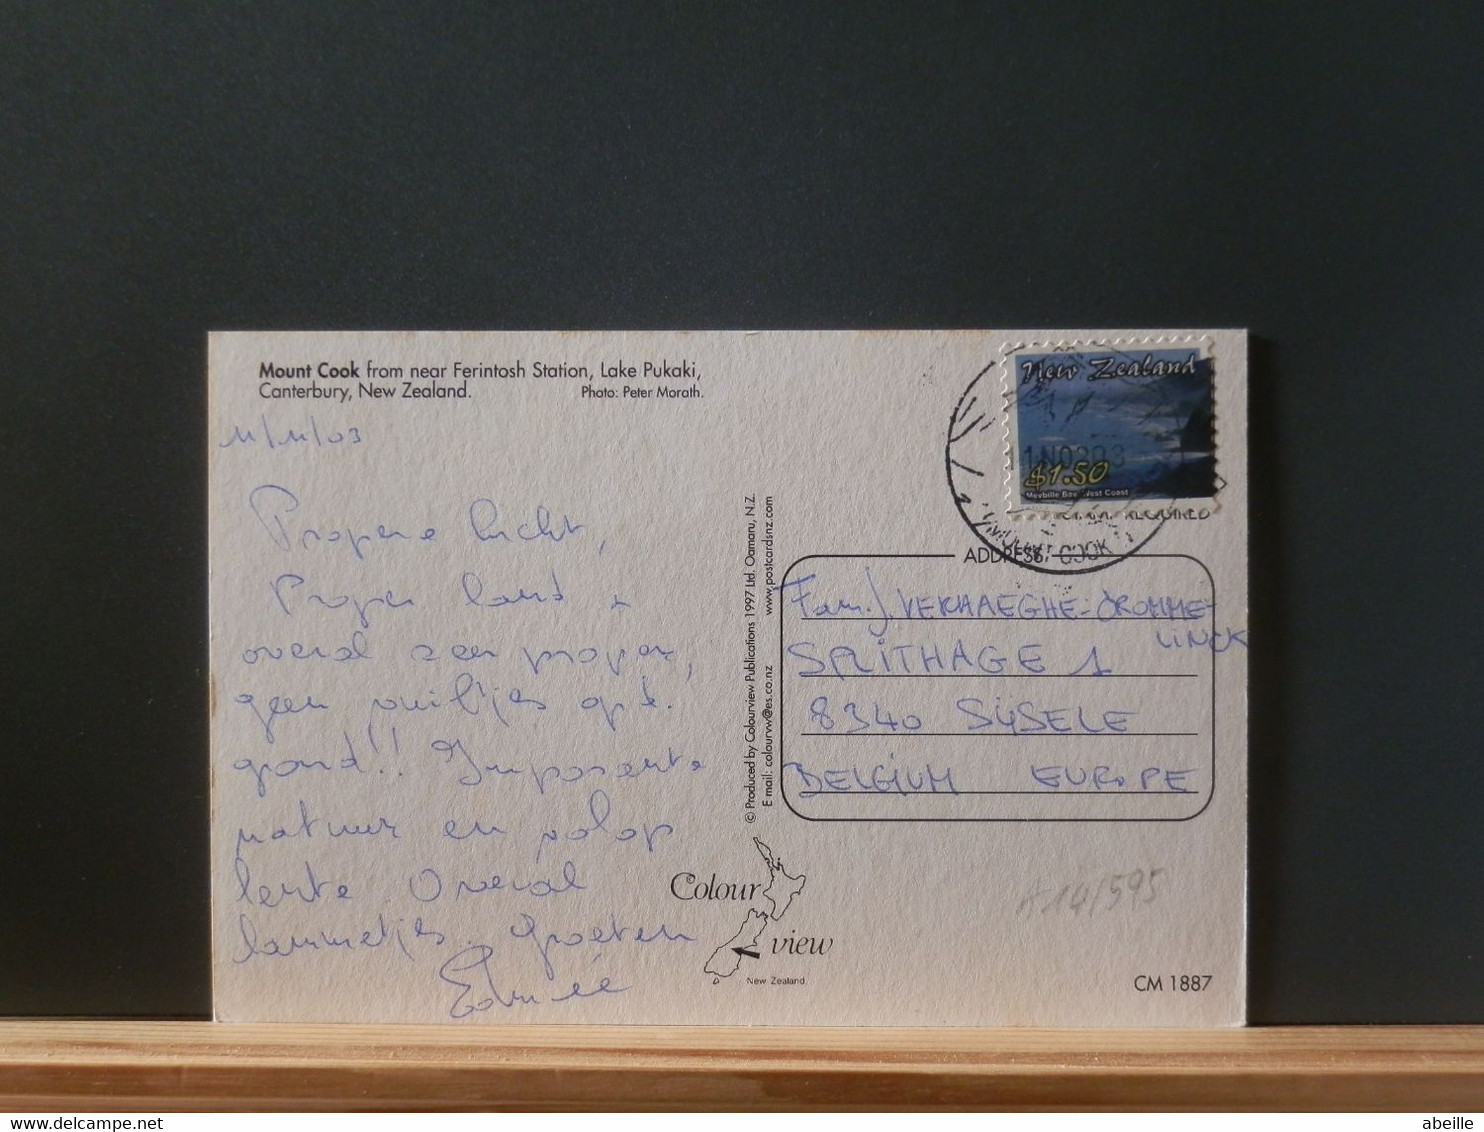 Mount Cook from near Ferintosh Station, Lake Pukaki,
Canterbury, New Zealand. Photo: Peter Morath.
11/11/03
Propere lucht,
Proper land,
overal zeer proper,
geen vuiltjes op d.
grond!! Imposante
natuur en volop
lente. Overal
lammetjes. Groeten
© Produced by Colourview Publications 1997 Ltd. Oamaru, N.Z.
E mail: colourvw@es.co.nz www.postcardsnz.com
New Zealand
11NO203
$1.50
West Coast
REQUIRED
MOUNT COOK
ADDRESS
Fam. J. VERHAEGHE-CROMME-
LINCK
SPLITHAGE 1
8340 SIJSELE
BELGIUM EUROPE
A14/595
Colour
view
New Zealand
CM 1887
abeille